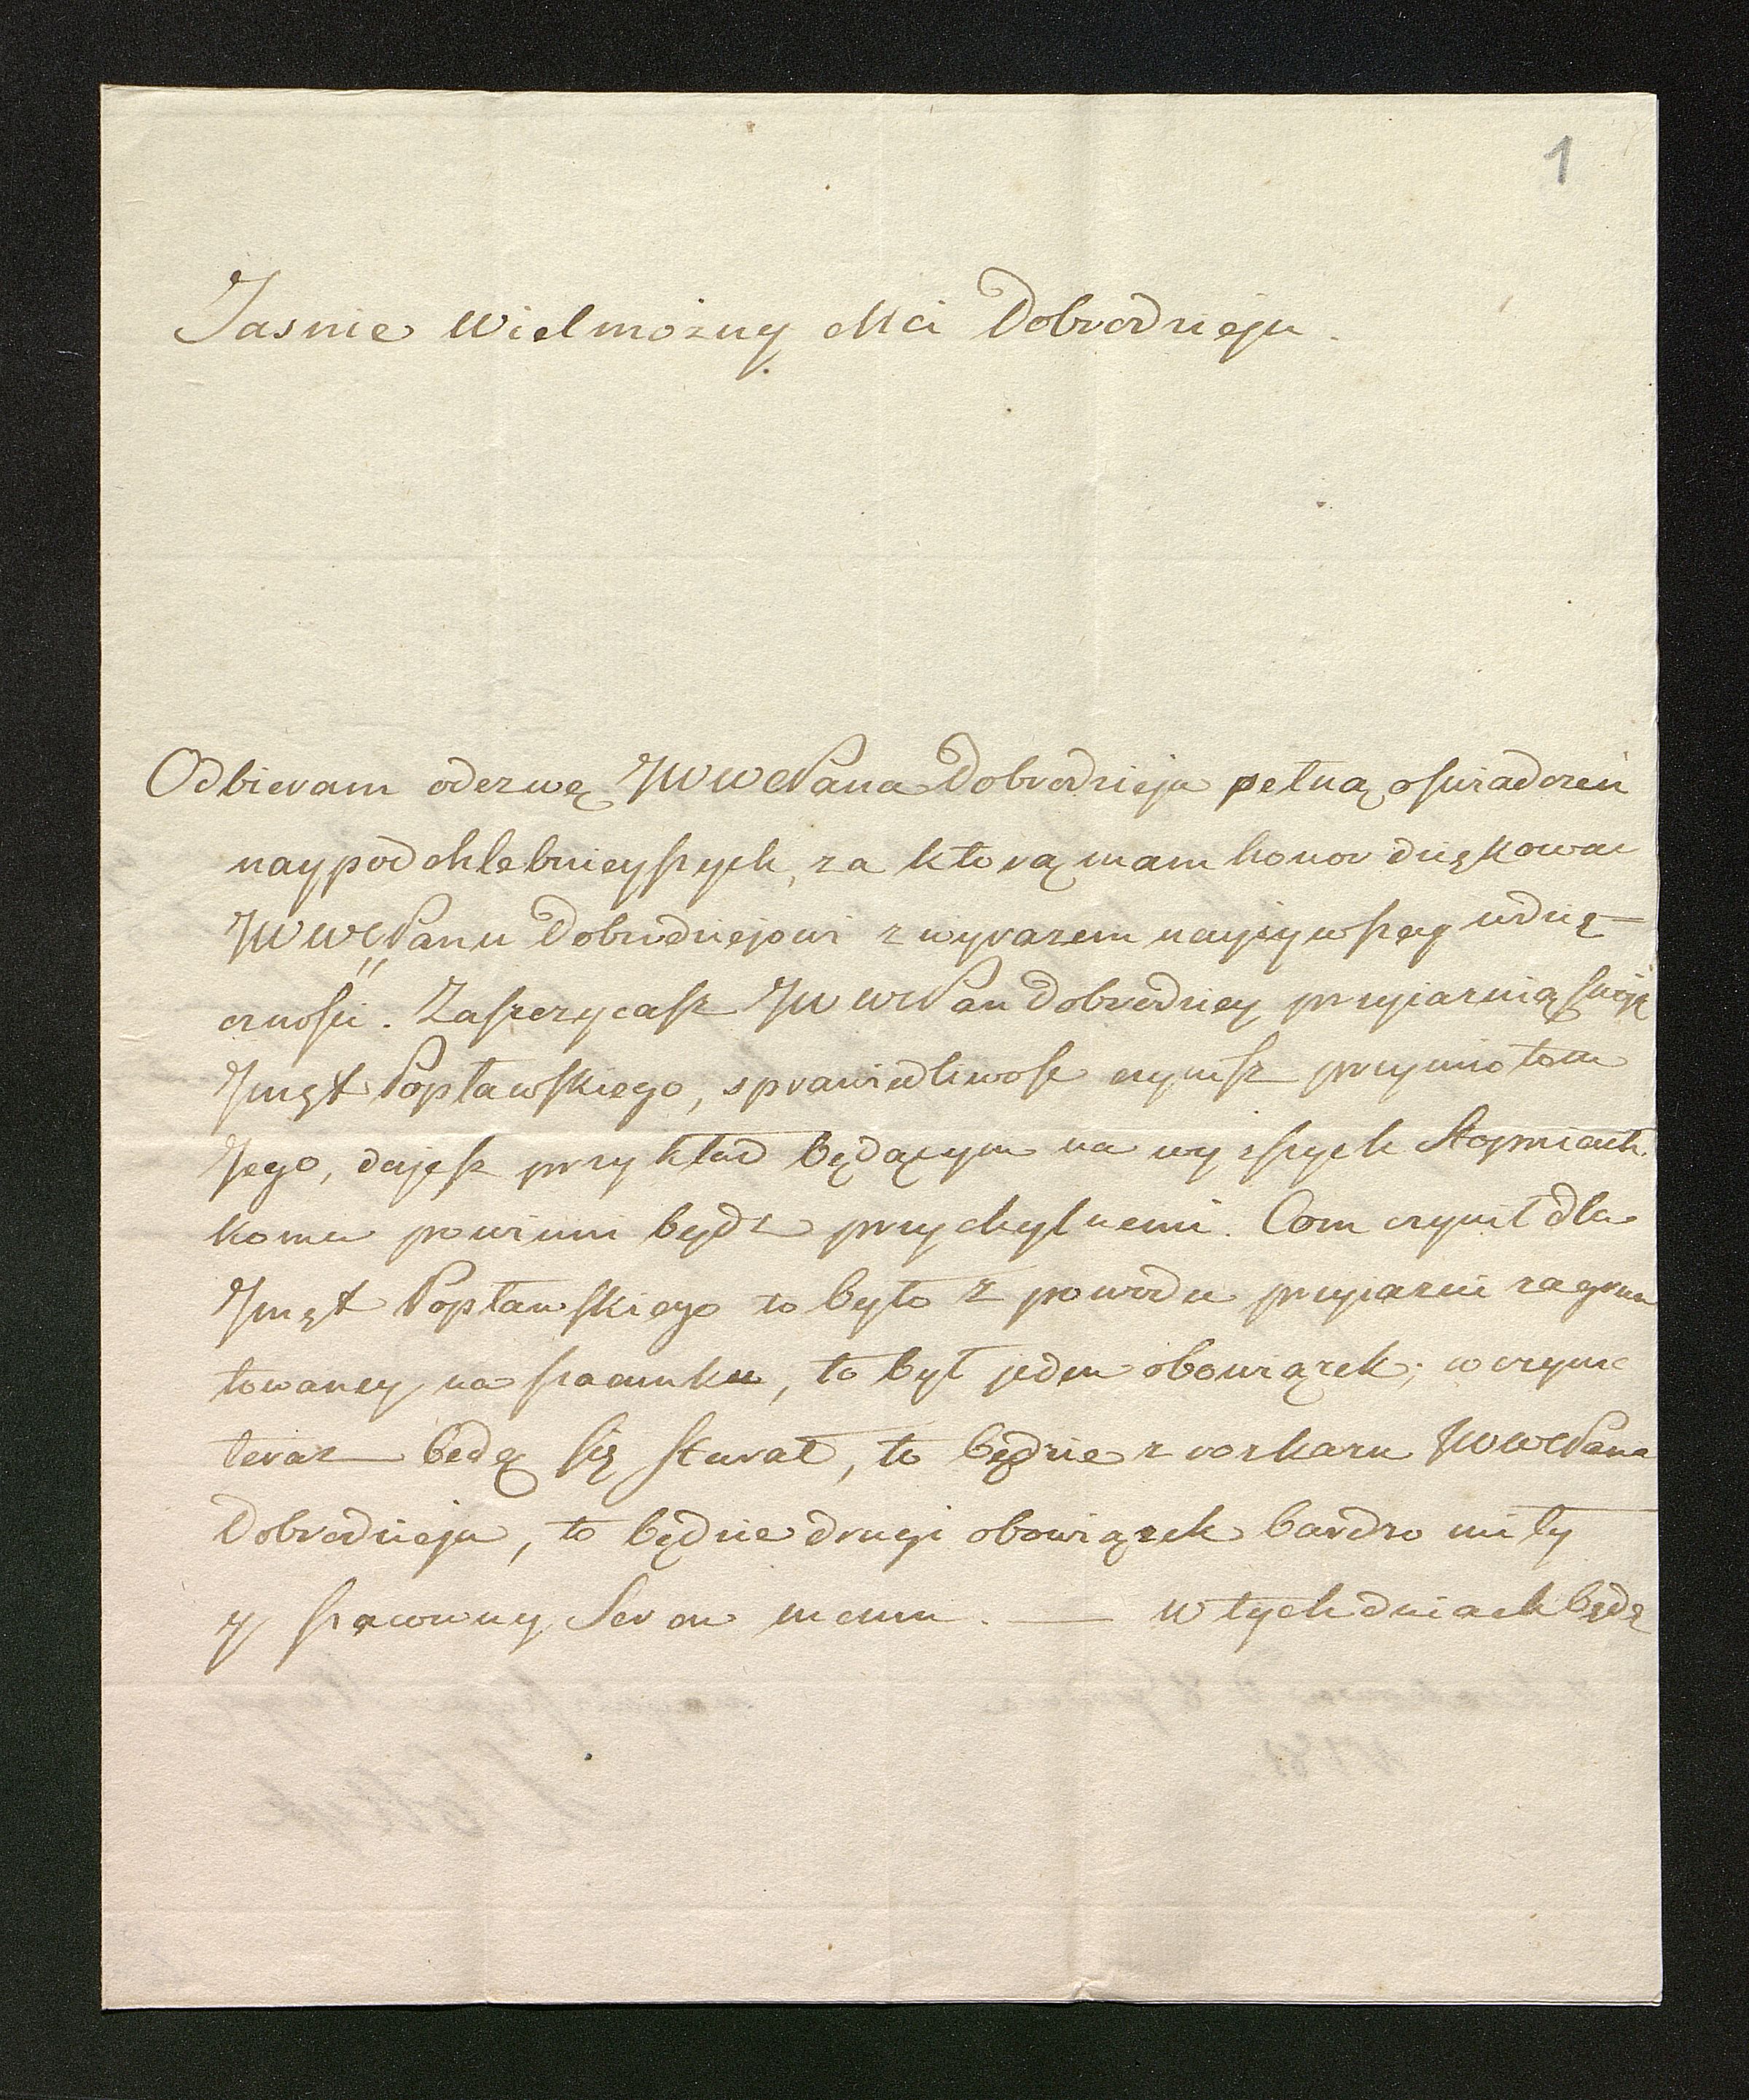 1
Jasnie Wielmożny Mci Dobrodzieju.
Odbieram odezwę JWWPana Dobrodzieja pełną oświadczeń
naypodchlebnieyszych, za ktorą mam honor dziękowac
JWWPanu Dobrodziejowi z wyrazem nayżywszey wdzię-
czności. Zaszczycasz JWWPan Dobrodziey przyiaznią swoją
Jmgx Popławskiego, sprawiedliwość czynisz przymiotom
Jego, dajesz przykład będącym na wyższych stopniach
komu powinni bydz przychylnemi. Com czynił dla
Jmgx Popławskiego to było z powodu przyiazni zagrun
towaney na szacunku, to był jeden obowiązek; w czym
teraz będę się starał, to będzie z rozkazu JWWPana
Dobrodzieja, to będzie drugi obowiązek bardzo miły
y szacowny Sercu memu. — w tych dniach będę